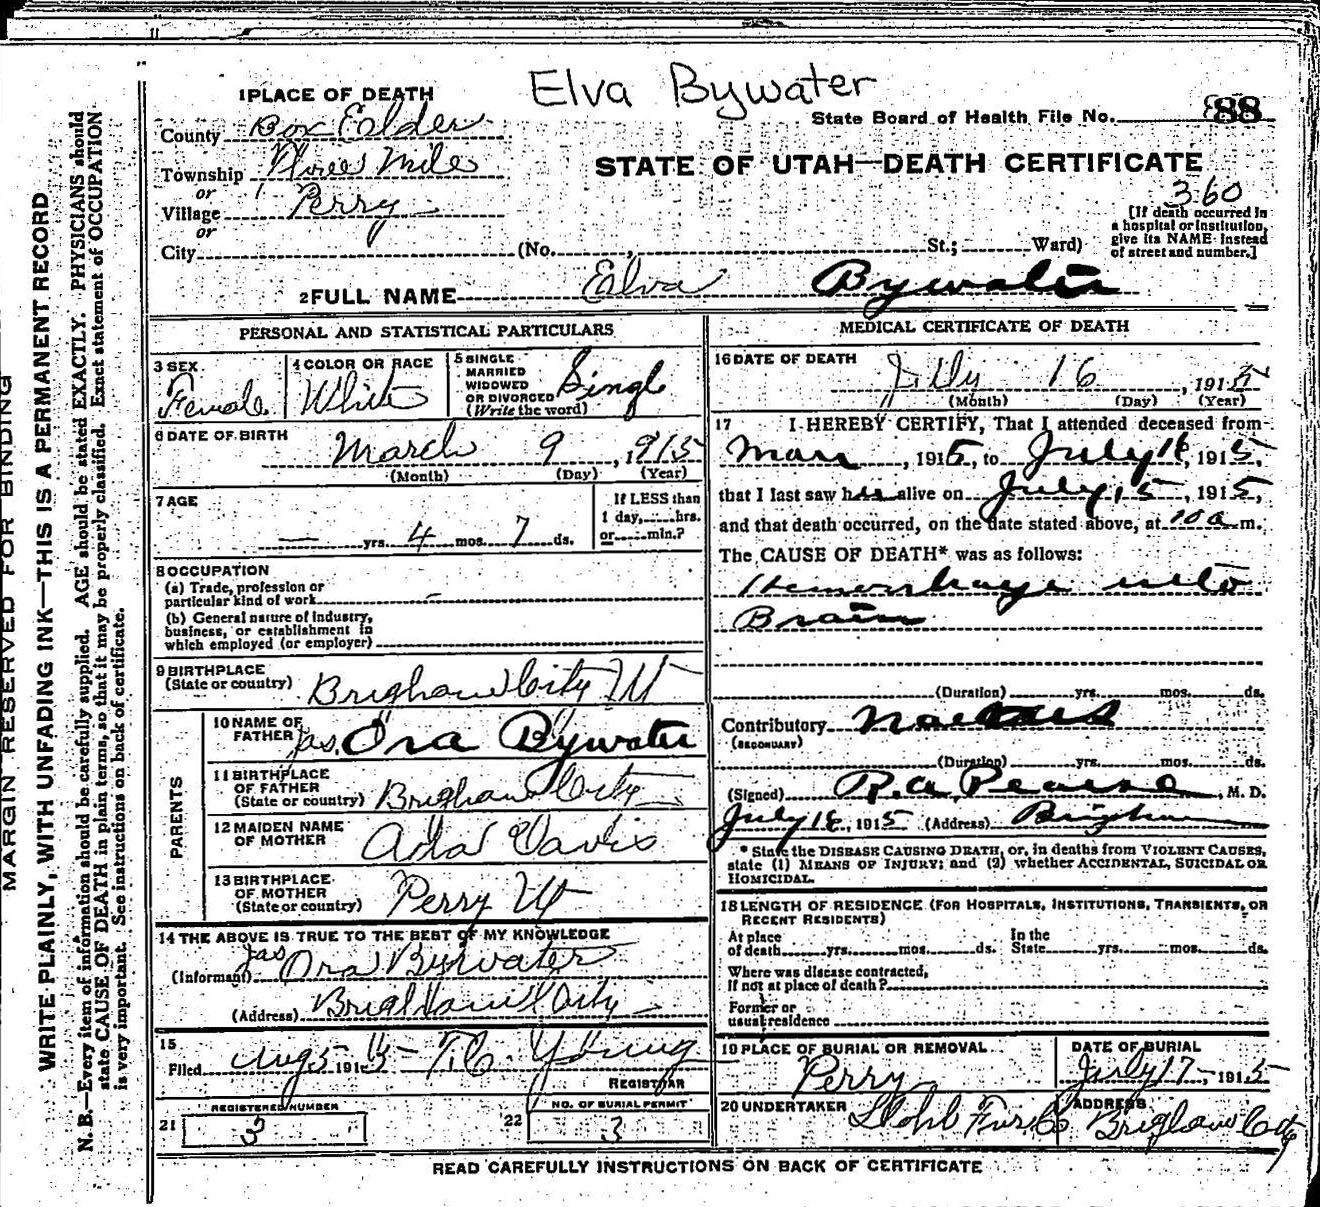 Elva Bywater
1 PLACE OF DEATH
State Board of Health File No. 88
County Box Eelder
STATE OF UTAH—DEATH CERTIFICATE
Township Three Mile
360
or
Village Perry
or
[If death occurred in
a hospital or institution,
give its NAME instead
of street and number.]
City (No. , St.; Ward)
2 FULL NAME Elva Bywater
PERSONAL AND STATISTICAL PARTICULARS
3 SEX Female
4 COLOR OR RACE White
5 SINGLE
MARRIED
WIDOWED
OR DIVORCED
(Write the word) Single
6 DATE OF BIRTH
March 9, 1915
(Month) (Day) (Year)
7 AGE
— yrs. 4 mos. 7 ds.
If LESS than
1 day, hrs.
or min.?
8 OCCUPATION
(a) Trade, profession or
particular kind of work –
(b) General nature of Industry,
business, or establishment in
which employed (or employer)
9 BIRTHPLACE
(State or country) Brigham City Ut
PARENTS
10 NAME OF
FATHER Jas Ora Bywater
11 BIRTHPLACE
OF FATHER
(State or country) Brigham City
12 MAIDEN NAME
OF MOTHER Ada Davis
13 BIRTHPLACE
OF MOTHER
(State or country) Perry Ut
14 THE ABOVE IS TRUE TO THE BEST OF MY KNOWLEDGE
(Informant) Jas Ora Bywater
(Address) Brigham City
15
Filed Aug 5 1915 T.C. Young
REGISTRAR
REGISTERED NUMBER
21 3
NO. OF BURIAL PERMIT
22 3
MEDICAL CERTIFICATE OF DEATH
16 DATE OF DEATH
July 16, 1915
(Month) (Day) (Year)
17 I HEREBY CERTIFY, That I attended deceased from
Mar, 1915, to July 16, 1915,
that I last saw h alive on July 15, 1915,
and that death occurred, on the date stated above, at 10 a m.
The CAUSE OF DEATH* was as follows:
Hemorrhage into
Brain
(Duration) yrs. mos. ds.
Contributory
(SECONDARY)
(Duration) yrs. mos. ds.
(Signed) R.A. Pearse, M. D.
July 18, 1915 (Address) Brigham
* State the DISEASE CAUSING DEATH, or, in deaths from VIOLENT CAUSES,
state (1) MEANS OF INJURY; and (2) whether ACCIDENTAL, SUICIDAL OR
HOMICIDAL.
18 LENGTH OF RESIDENCE (FOR HOSPITALS, INSTITUTIONS, TRANSIENTS, OR
RECENT RESIDENTS)
At place
of death yrs. mos. ds.
In the
State yrs. mos. ds.
Where was disease contracted,
If not at place of death?
Former or
usual residence
19 PLACE OF BURIAL OR REMOVAL
Perry
DATE OF BURIAL
July 17, 1915
20 UNDERTAKER Furn Co
ADDRESS
Brigham City
READ CAREFULLY INSTRUCTIONS ON BACK OF CERTIFICATE
MARGIN RESERVED FOR BINDING
WRITE PLAINLY, WITH UNFADING INK—THIS IS A PERMANENT RECORD
N. B.—Every item of information should be carefully supplied. AGE should be stated EXACTLY. PHYSICIANS should
state CAUSE OF DEATH in plain terms, so that it may be properly classified. Exact statement of OCCUPATION
is very important. See instructions on back of certificate.